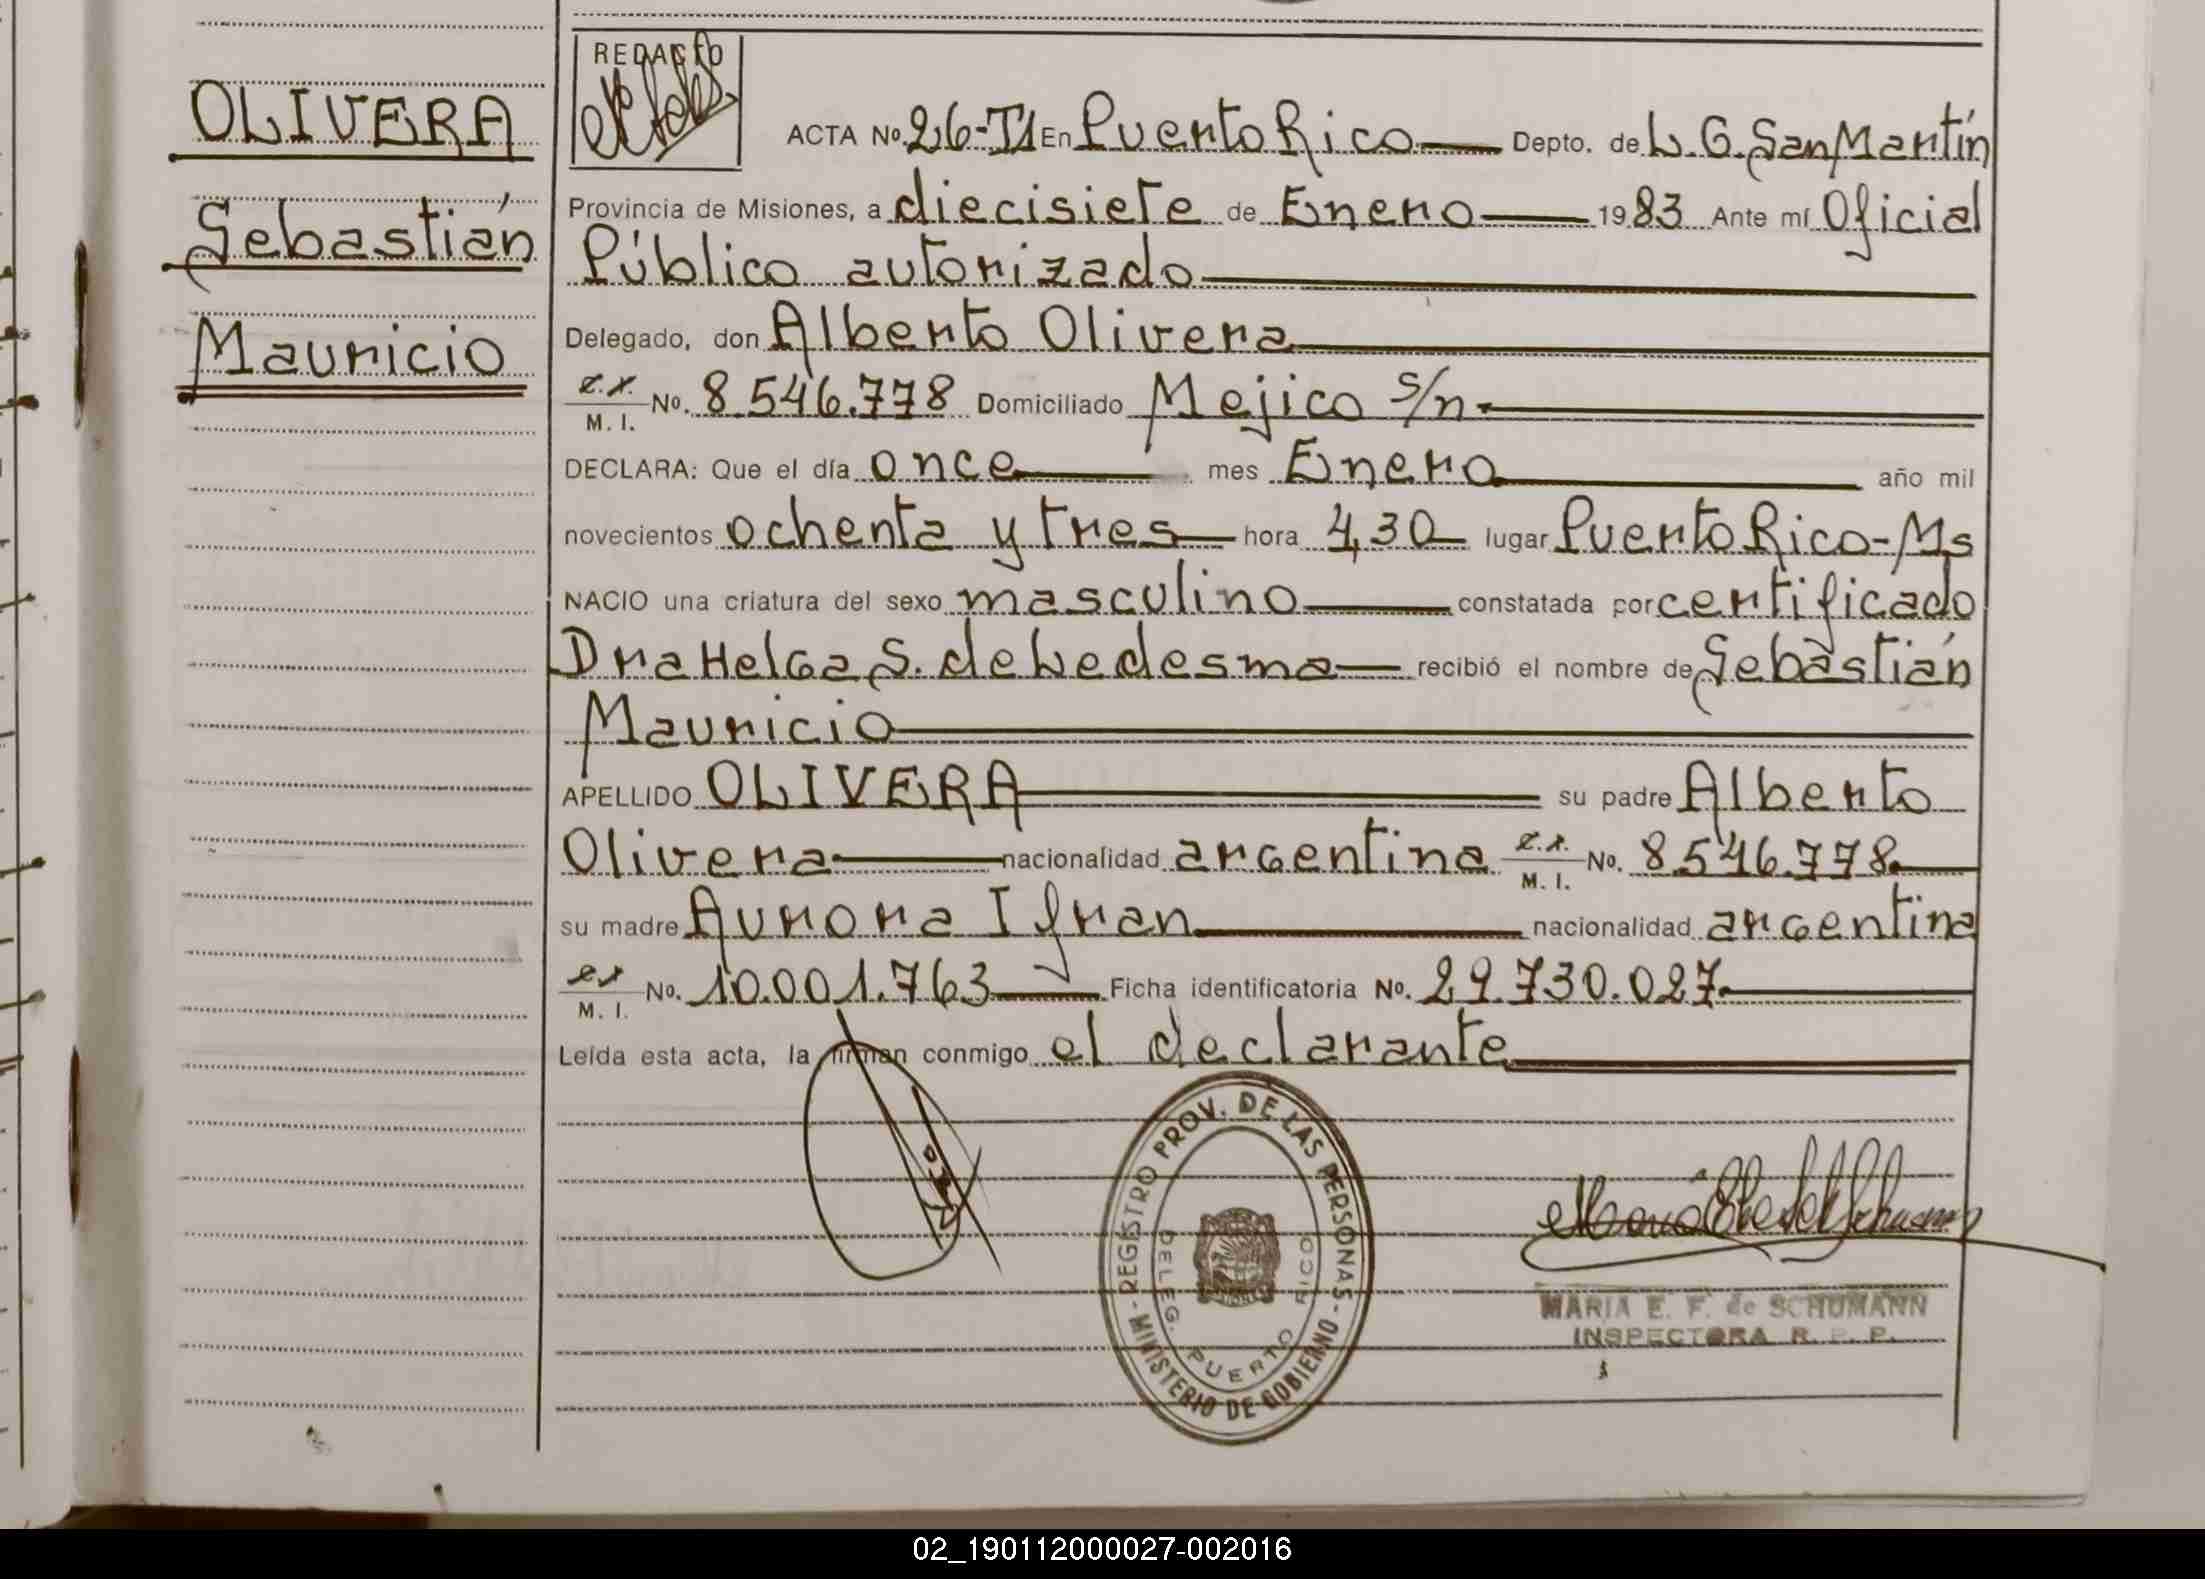 OLIVERA
Sebastián
Mauricio
REDACTO
ACTA Nº. 26-T1 En Puerto Rico Depto. de L. G. San Martín
Provincia de Misiones, a diecisiete de Enero 1983 Ante mí Oficial
Público autorizado
Delegado, don Alberto Olivera
M. I. Nº. 8.546.778 Domiciliado Mejico s/n.
DECLARA: Que el día once mes Enero año mil
novecientos ochenta y tres hora 4,30 lugar Puerto Rico-Ms
NACIO una criatura del sexo masculino constatada por certificado
Dra Helga S. de Ledesma recibió el nombre de Sebastián
Mauricio
APELLIDO OLIVERA su padre Alberto
Olivera nacionalidad argentina M. I. Nº. 8.546.778.
su madre Aurora Ifran nacionalidad argentina
M. I. Nº. 10.001.763 Ficha identificatoria Nº. 29.730.027.
Leída esta acta, la firman conmigo el declarante
- REGISTRO PROV. DE LAS PERSONAS - MINISTERIO DE GOBIERNO
DELEG. PUERTO RICO
MARIA E. F. de SCHUMANN
INSPECTORA R. P. P.
02_190112000027-002016